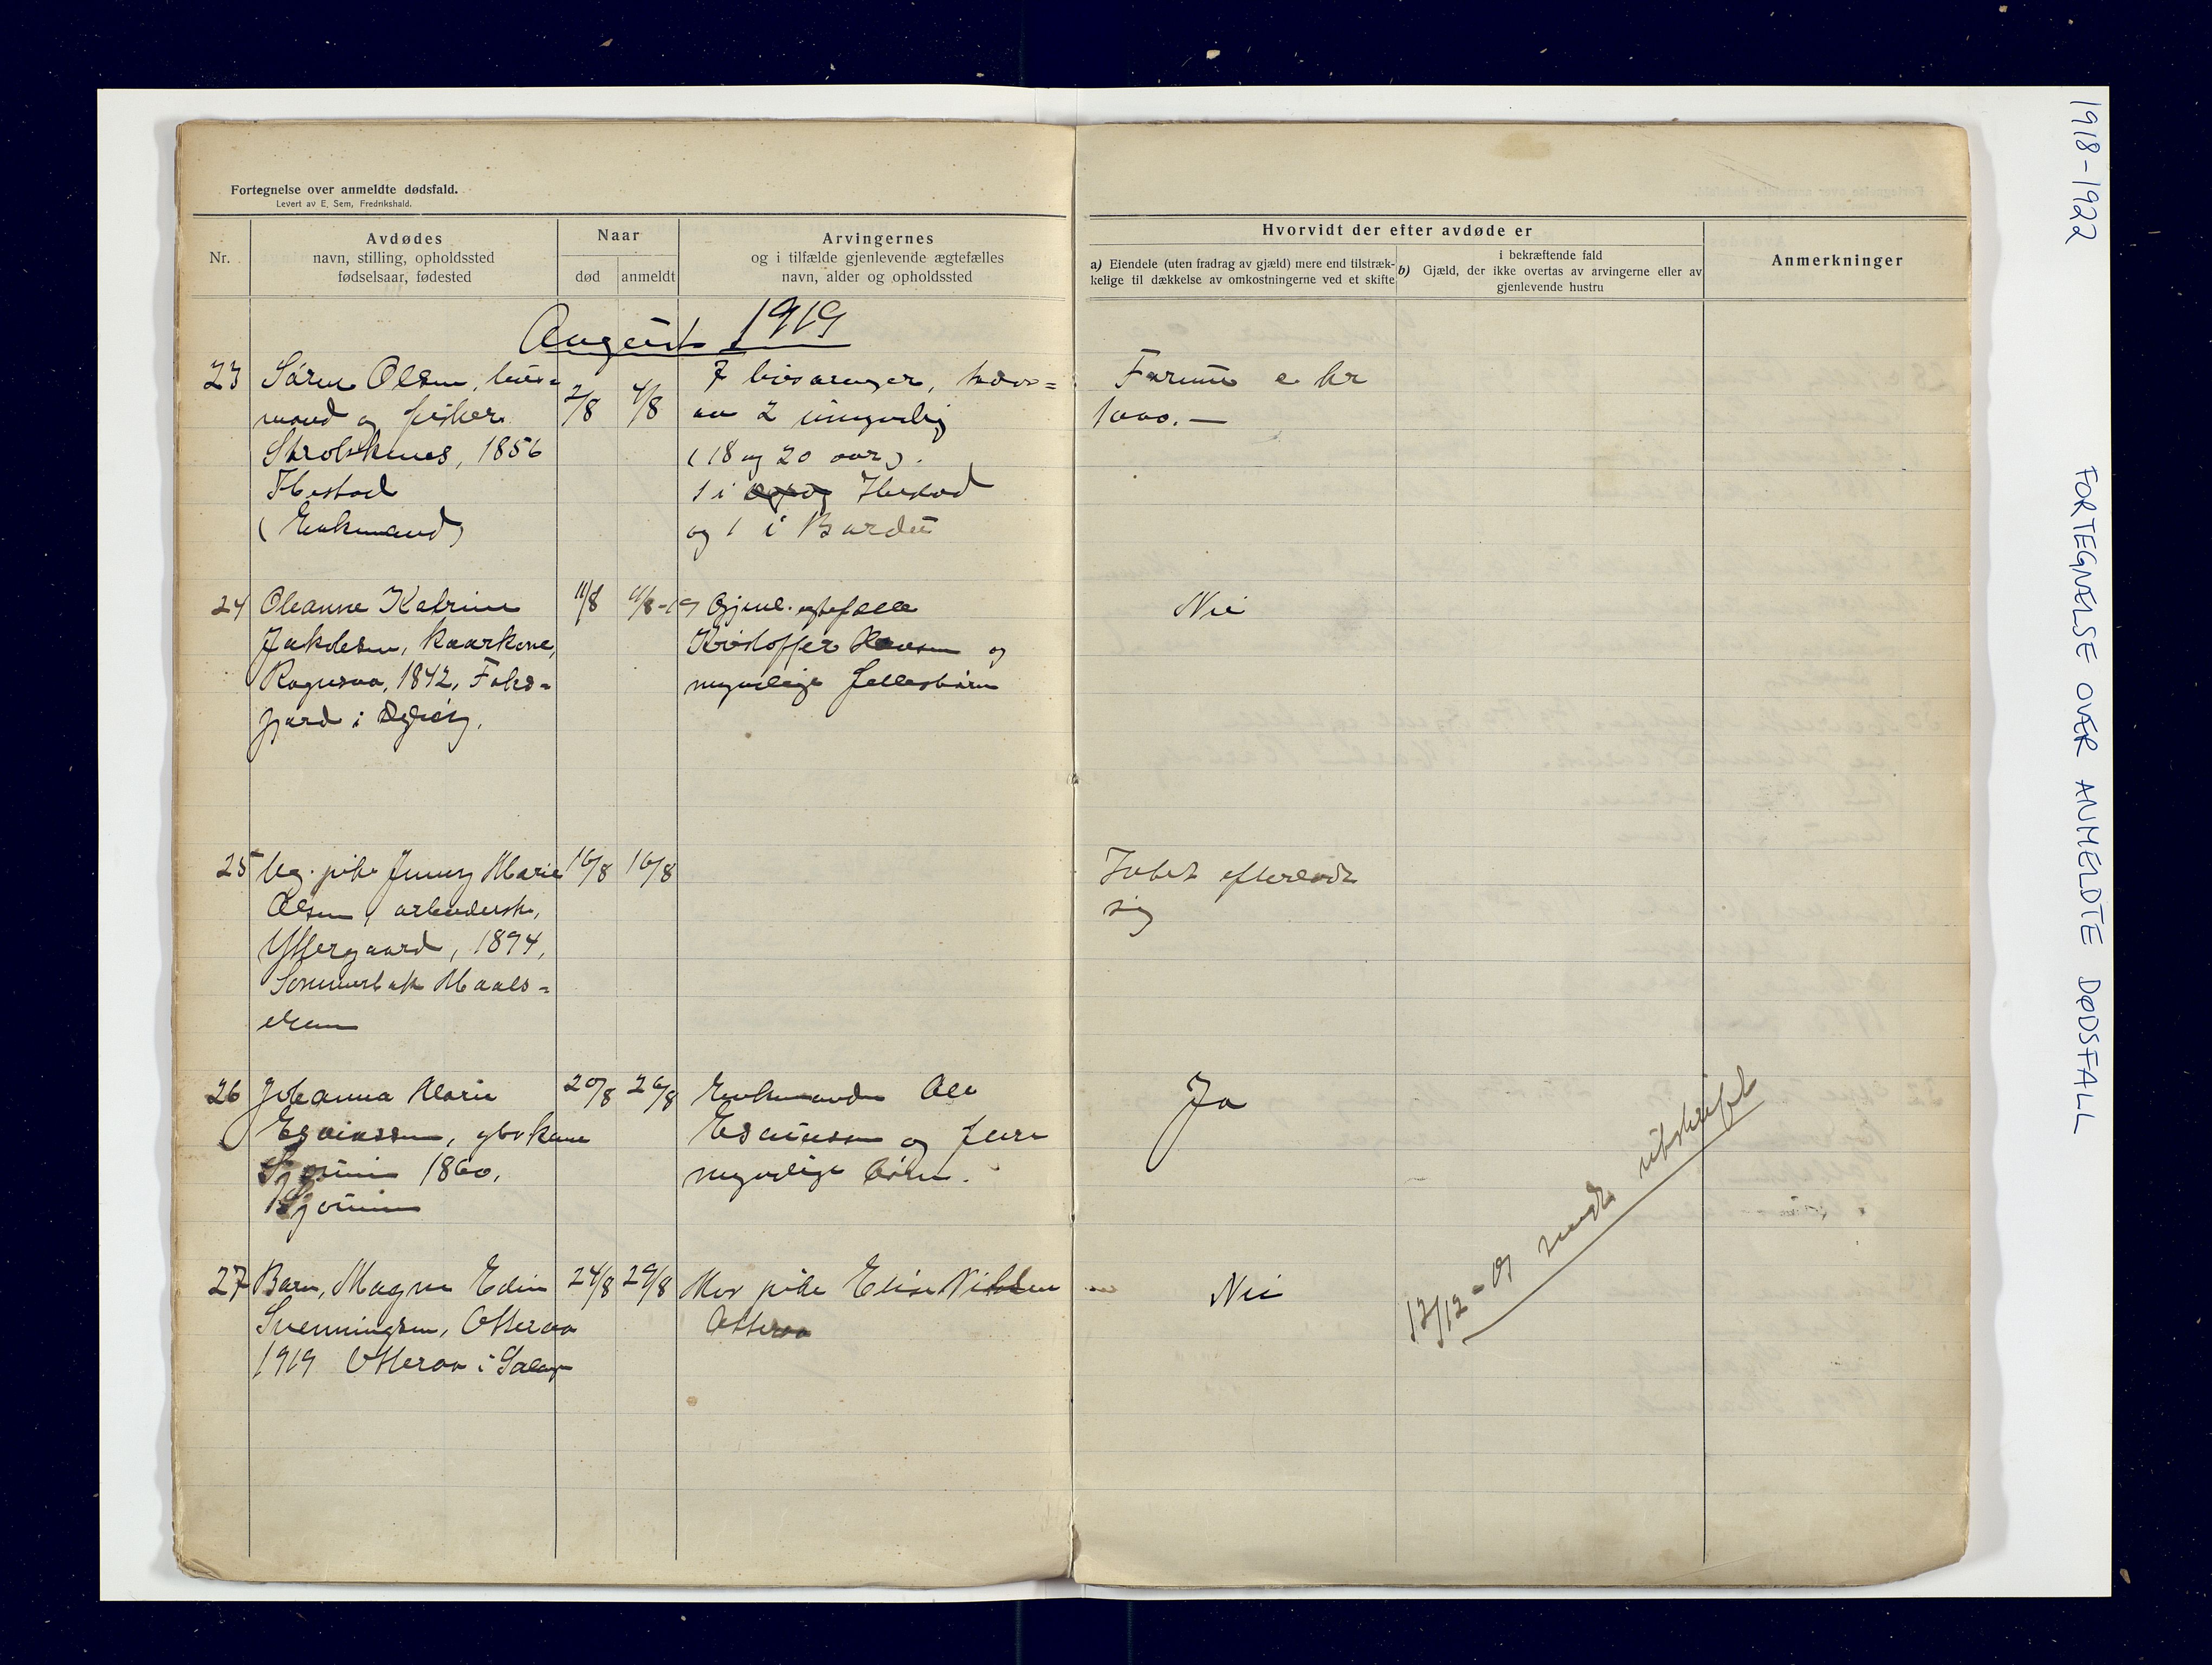 Fortegnelse over anmeldte dødsfald.
Levert av E. Sem, Fredrikshald.
Nr.
Avdødes
navn, stilling, opholdssted
fødselsaar, fødested
Naar
død
anmeldt
Arvingernes
og i tilfælde gjenlevende ægtefælles
navn, alder og opholdssted
Hvorvidt der efter avdøde er
a) Eiendele (uten fradrag av gjæld) mere end tilstræk-
kelige til dækkelse av omkostningerne ved et skifte
i bekræftende fald
b) Gjæld, der ikke overtas av arvingerne eller av
gjenlevende hustru
Anmerkninger
August 1919
23
Sören Olsen, hus=
mand og fisker
1856
Ibestad
(Enkemand)
2/8
4/8
7 livsarvinger, hvor=
av 2 umyndig
(18 og 20 aar).
1 i Ibestad
og 1 i Bardu
Formue e kr
1000.—
24
Oleanna Katrine
Jakobsen, kaarkone,
1842, Foks=
gjord i
11/8
11/8-19
Gjenl. egtefælle
Kristoffer Hansen og
myndige fellesbörn
Nei
25
Ug. pike Jenny Marie
Olsen, arbeiderske,
Yttergaard, 1894,
Sommerbak Maals=
elven
16/8
16/8
Intet efterladt
sig
26
Johanna Marie
Esaiassen, gbr kone
Gjövik 1860,
20/8
26/8
Enkemanden Ole
Esaiassen og fire
myndige börn.
Ja
27
Barn, Magne Edin
Svenningsen, Otteraa
1919 Otteraa i Salang
24/8
29/8
Mor pike Elise Nilsen
Otteraa
Nei
12/12-19 sendt utskrift
1918-1922
FORTEGNÆLSE OVÆR ANMELDTE DØDSFALL